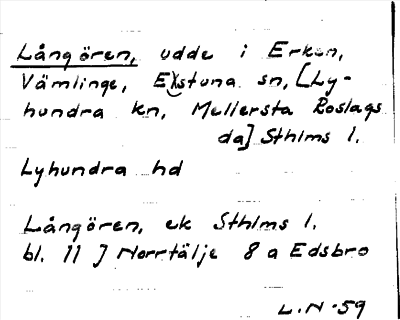 Långören, udde i Erken,
Vämlinge, Estuna sn, [Ly-
hundra kn, Mellersta Roslags
da] Sthlms l.
Lyhundra hd
Långören, ek Sthlms l.
bl. 11 J Norrtälje 8 a Edsbro
L.N-59